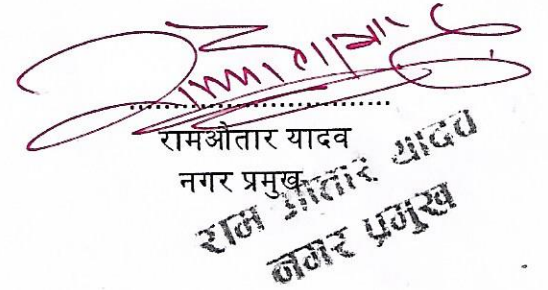 रामऔतार यादव
नगर प्रमुख
राम औतार यादव
नगर प्रमुख